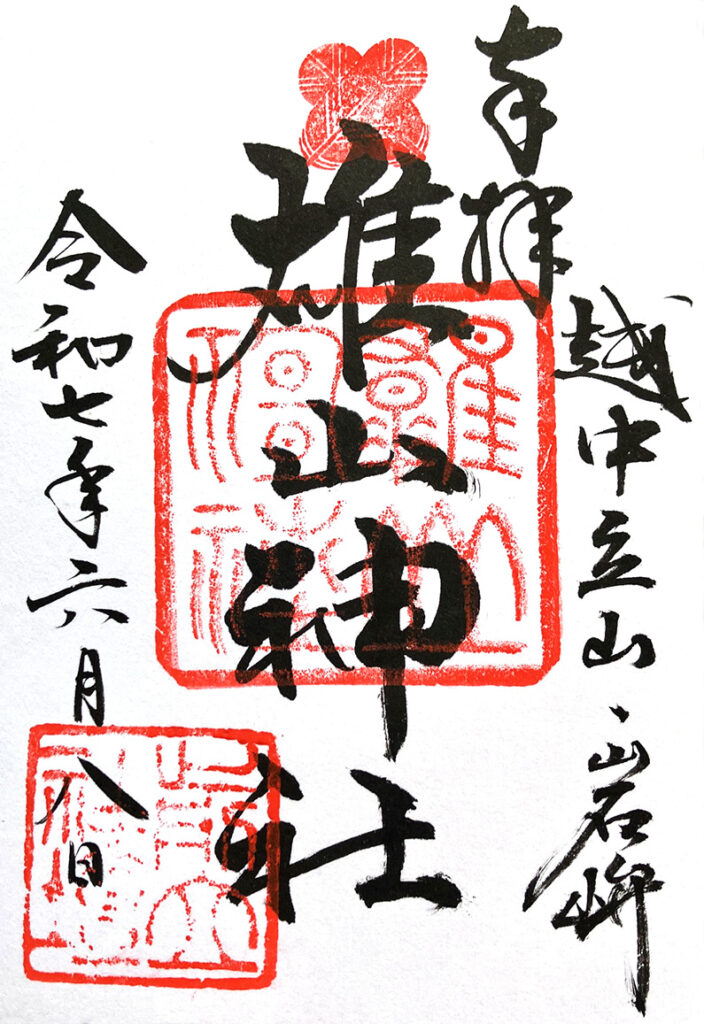 奉拝
越中立山岩峅
雄山神社
令和七年六月八日